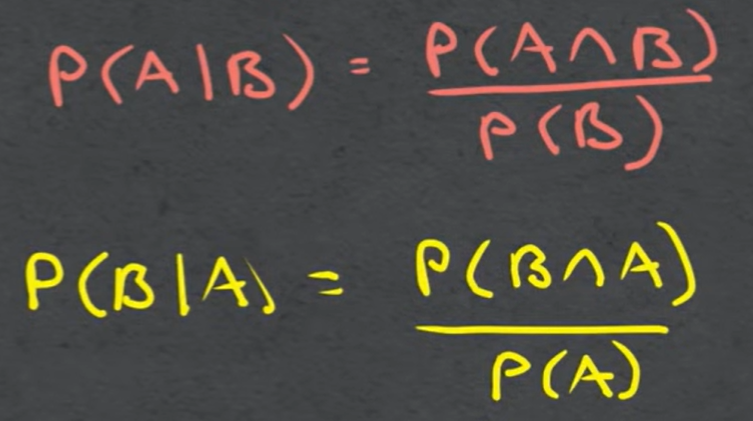 P(A|B) = P(A∩B)
P(B)
P(B|A) = P(B∩A)
P(A)